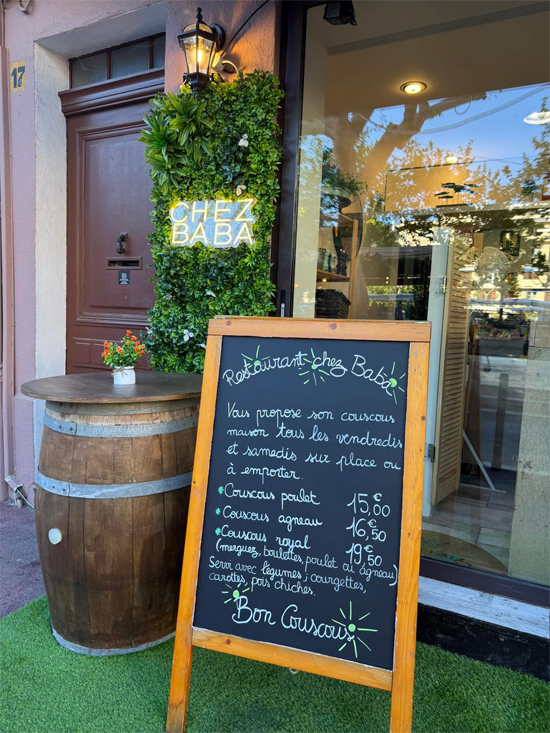 17
CHEZ
BABA
Restaurant chez Baba
Vous propose son couscous
maison tous les vendredis
et samedis sur place ou
à emporter.
*Couscous poulet 15,00€
*Couscous agneau 16,50€
*Couscous royal 19,50€
(merguez, boulettes, poulet ou agneau)
Servi avec légumes; courgettes,
carottes, pois chiches.
Bon Couscous